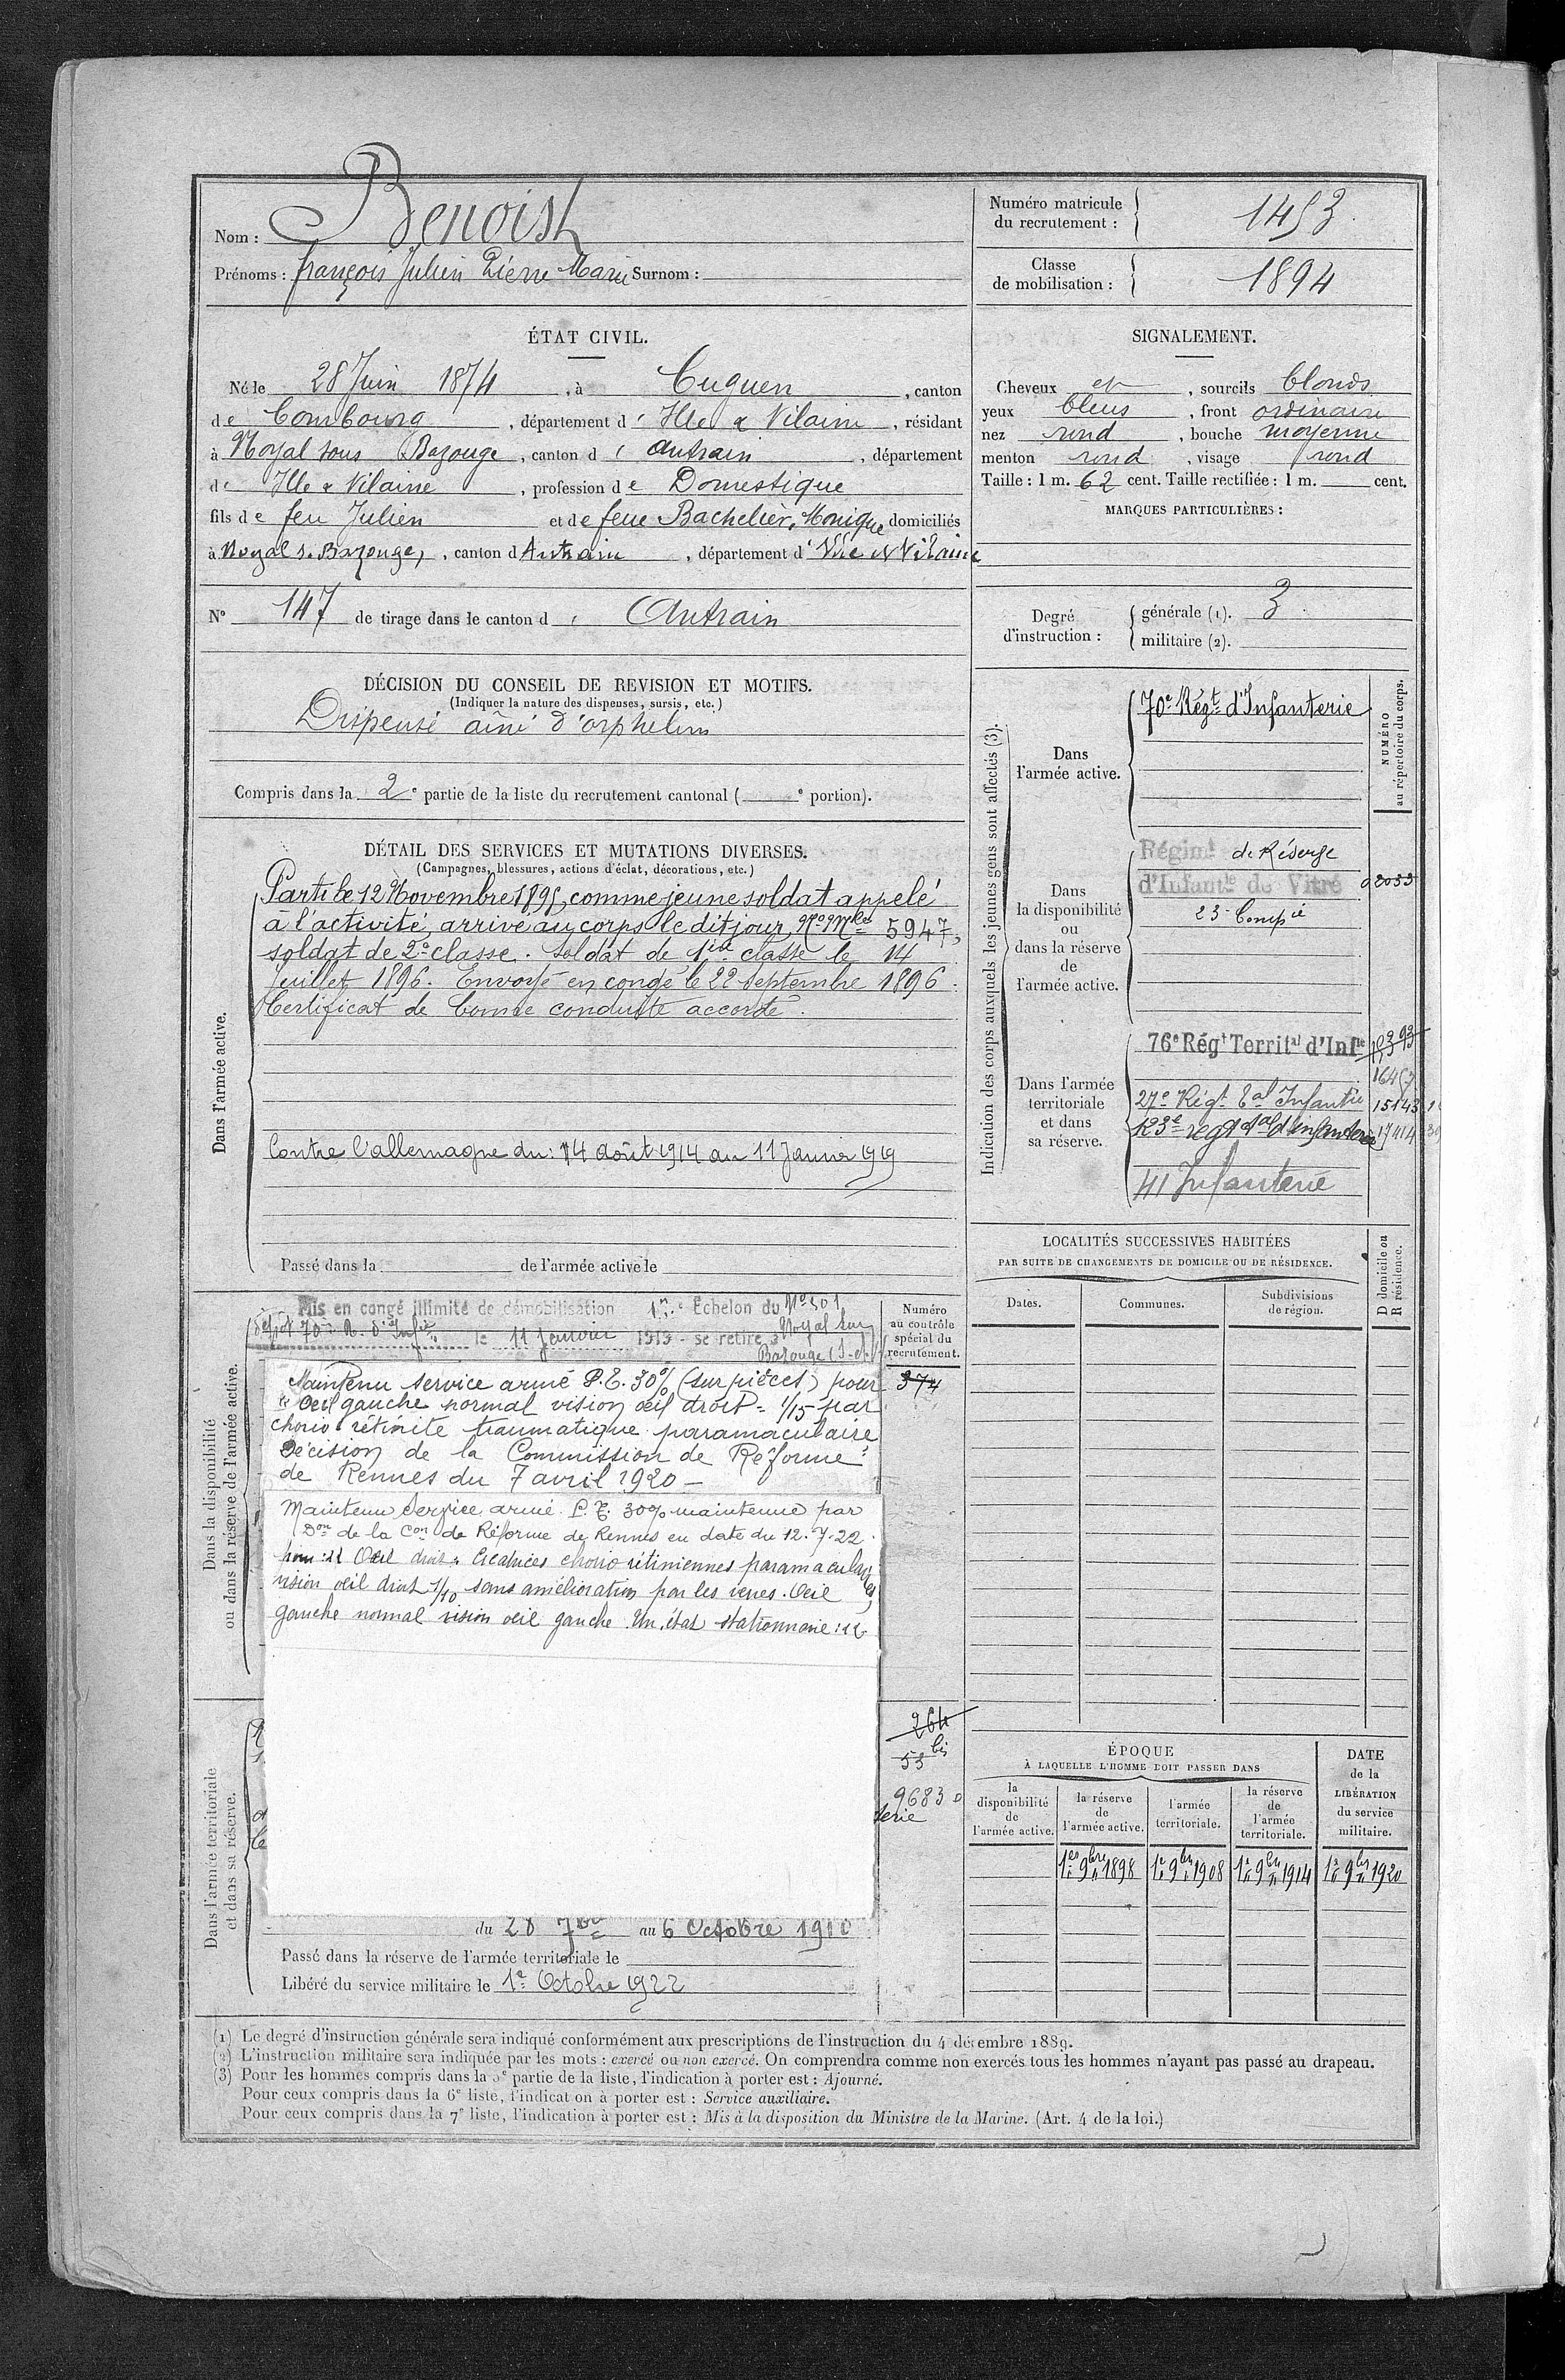 Nom : Benoist
Prénoms : François Julien Pierre Marie Surnom :
Numéro matricule du recrutement : 1453
Classe de mobilisation : 1894
ÉTAT CIVIL.
Né le 28 Juin 1874, à Cuguen, canton
de Combourg, département d' Ille & Vilaine, résidant
à Noyal sous Bazouge, canton d' Antrain, département
de Ille & Vilaine, profession de Domestique
fils de feu Julien et de feue Bachelier, Monique domiciliés
à Noyal s. Bazouge, canton d'Antrain, département d'Ille et Vilaine
N° 147 de tirage dans le canton d' Antrain
SIGNALEMENT.
Cheveux et, sourcils blonds
yeux bleus, front ordinaire
nez rond, bouche moyenne
menton rond, visage rond
Taille : 1 m. 62 cent. Taille rectifiée : 1 m. cent.
MARQUES PARTICULIÈRES :
Degré d'instruction : générale (1). 3
militaire (2).
DÉCISION DU CONSEIL DE REVISION ET MOTIFS.
(Indiquer la nature des dispenses, sursis, etc.)
Dispensé aîné d'orphelins
Compris dans la 2e partie de la liste du recrutement cantonal ( e portion).
DÉTAIL DES SERVICES ET MUTATIONS DIVERSES.
(Campagnes, blessures, actions d'éclat, décorations, etc.)
Dans l'armée active.
Parti le 12 Novembre 1895, comme jeune soldat appelé
à l'activité, arrivé au corps le dit jour, No Mle 5947,
soldat de 2e classe. Soldat de 1ère classe le 14
Juillet 1896. Envoyé en congé le 22 Septembre 1896.
Certificat de bonne conduite accordé.
Contre l'allemagne du : 14 août 1914 au 11 Janvier 1919
Passé dans la de l'armée active le
Indication des corps auxquels les jeunes gens sont affectés (3).
NUMÉRO au répertoire du corps.
Dans l'armée active.
70e Régt d'Infanterie
Dans la disponibilité ou dans la réserve de l'armée active.
Régimt de Réserve
d'Infantie de Vitré 02033
23e Compie
Dans l'armée territoriale et dans sa réserve.
76e Régt Territal d'Infie 10393
1645
27e Régt Tal Infantie 15143
123e régt tal d'infanterie 17414
41 Infanterie
LOCALITÉS SUCCESSIVES HABITÉES
PAR SUITE DE CHANGEMENTS DE DOMICILE OU DE RÉSIDENCE.
Dates. Communes. Subdivisions de région. D domicile ou R résidence.
Dans la disponibilité ou dans la réserve de l'armée active.
Mis en congé illimité de démobilisation 1er Échelon du No 301
dépôt 70e R. d'Infie le 11 Janvier 1919 - se retire à Noyal sur
Bazouge (I-et-V)
Numéro au contrôle spécial du recrutement.
374
Maintenu service armé P.E. 30% (sur pièces) pour
"Oeil gauche normal vision œil droit = 1/15 par
chorio rétinite traumatique paramaculaire
Décision de la Commission de Réforme
de Rennes du 7 avril 1920 -
Maintenu Service armé P.E. 30% maintenue par
Don de la Con de Réforme de Rennes en date du 12.7.22.
pour : "Oeil droit : Cicatrices chorio rétiniennes paramaculaires
vision œil droit 1/10 sans amélioration par les verres. Oeil
gauche normal vision œil gauche Un, état stationnaire."
Dans l'armée territoriale et dans sa réserve.
264
53 bis
9683
terie
du 28 7bre au 6 Octobre 1910
Passé dans la réserve de l'armée territoriale le
Libéré du service militaire le 1er Octobre 1922
ÉPOQUE
À LAQUELLE L'HOMME DOIT PASSER DANS
la disponibilité de l'armée active.
la réserve de l'armée active.
l'armée territoriale.
la réserve de l'armée territoriale.
DATE de la LIBÉRATION du service militaire.
1er 9bre 1898 1er 9bre 1908 1er 9bre 1914 1er 9bre 1920
(1) Le degré d'instruction générale sera indiqué conformément aux prescriptions de l'instruction du 4 décembre 1889.
(2) L'instruction militaire sera indiquée par les mots : exercé ou non exercé. On comprendra comme non exercés tous les hommes n'ayant pas passé au drapeau.
(3) Pour les hommes compris dans la 5e partie de la liste, l'indication à porter est : Ajourné.
Pour ceux compris dans la 6e liste, l'indication à porter est : Service auxiliaire.
Pour ceux compris dans la 7e liste, l'indication à porter est : Mis à la disposition du Ministre de la Marine. (Art. 4 de la loi.)